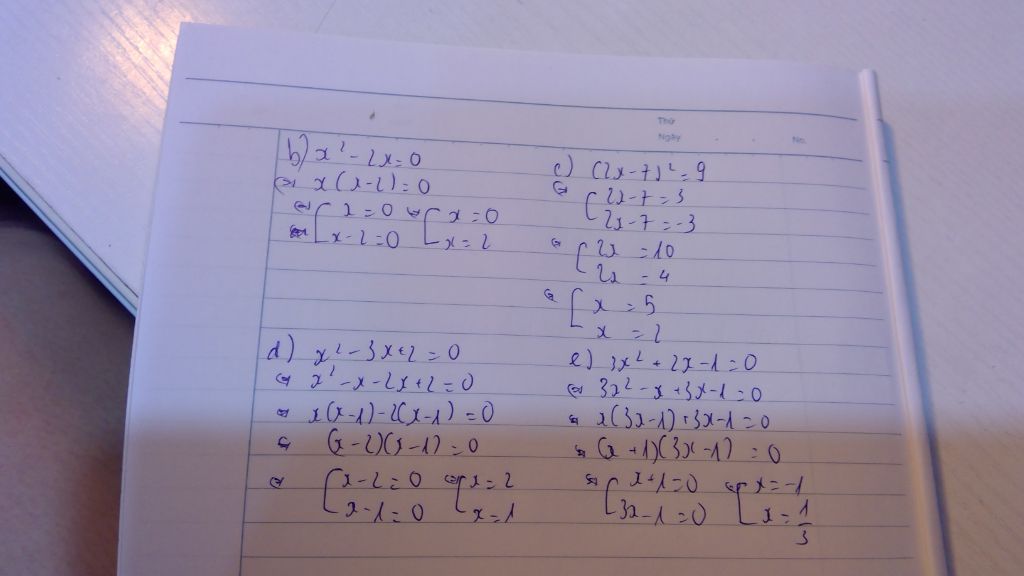 Thứ
Ngày
No.
b) x² - 2x = 0
⇔ x(x-2) = 0
⇔ [ x = 0 ⇔ [ x = 0
x-2 = 0 x = 2
c) (2x-7)² = 9
⇔ [ 2x-7 = 3
2x-7 = -3
⇔ [ 2x = 10
2x = 4
⇔ [ x = 5
x = 2
d) x² - 3x + 2 = 0
⇔ x² - x - 2x + 2 = 0
⇔ x(x-1) - 2(x-1) = 0
⇔ (x-2)(x-1) = 0
⇔ [ x-2 = 0 ⇔ [ x = 2
x-1 = 0 x = 1
e) 3x² + 2x - 1 = 0
⇔ 3x² - x + 3x - 1 = 0
⇔ x(3x-1) + 3x-1 = 0
⇔ (x+1)(3x-1) = 0
⇔ [ x+1 = 0 ⇔ [ x = -1
3x-1 = 0 x = 1/3